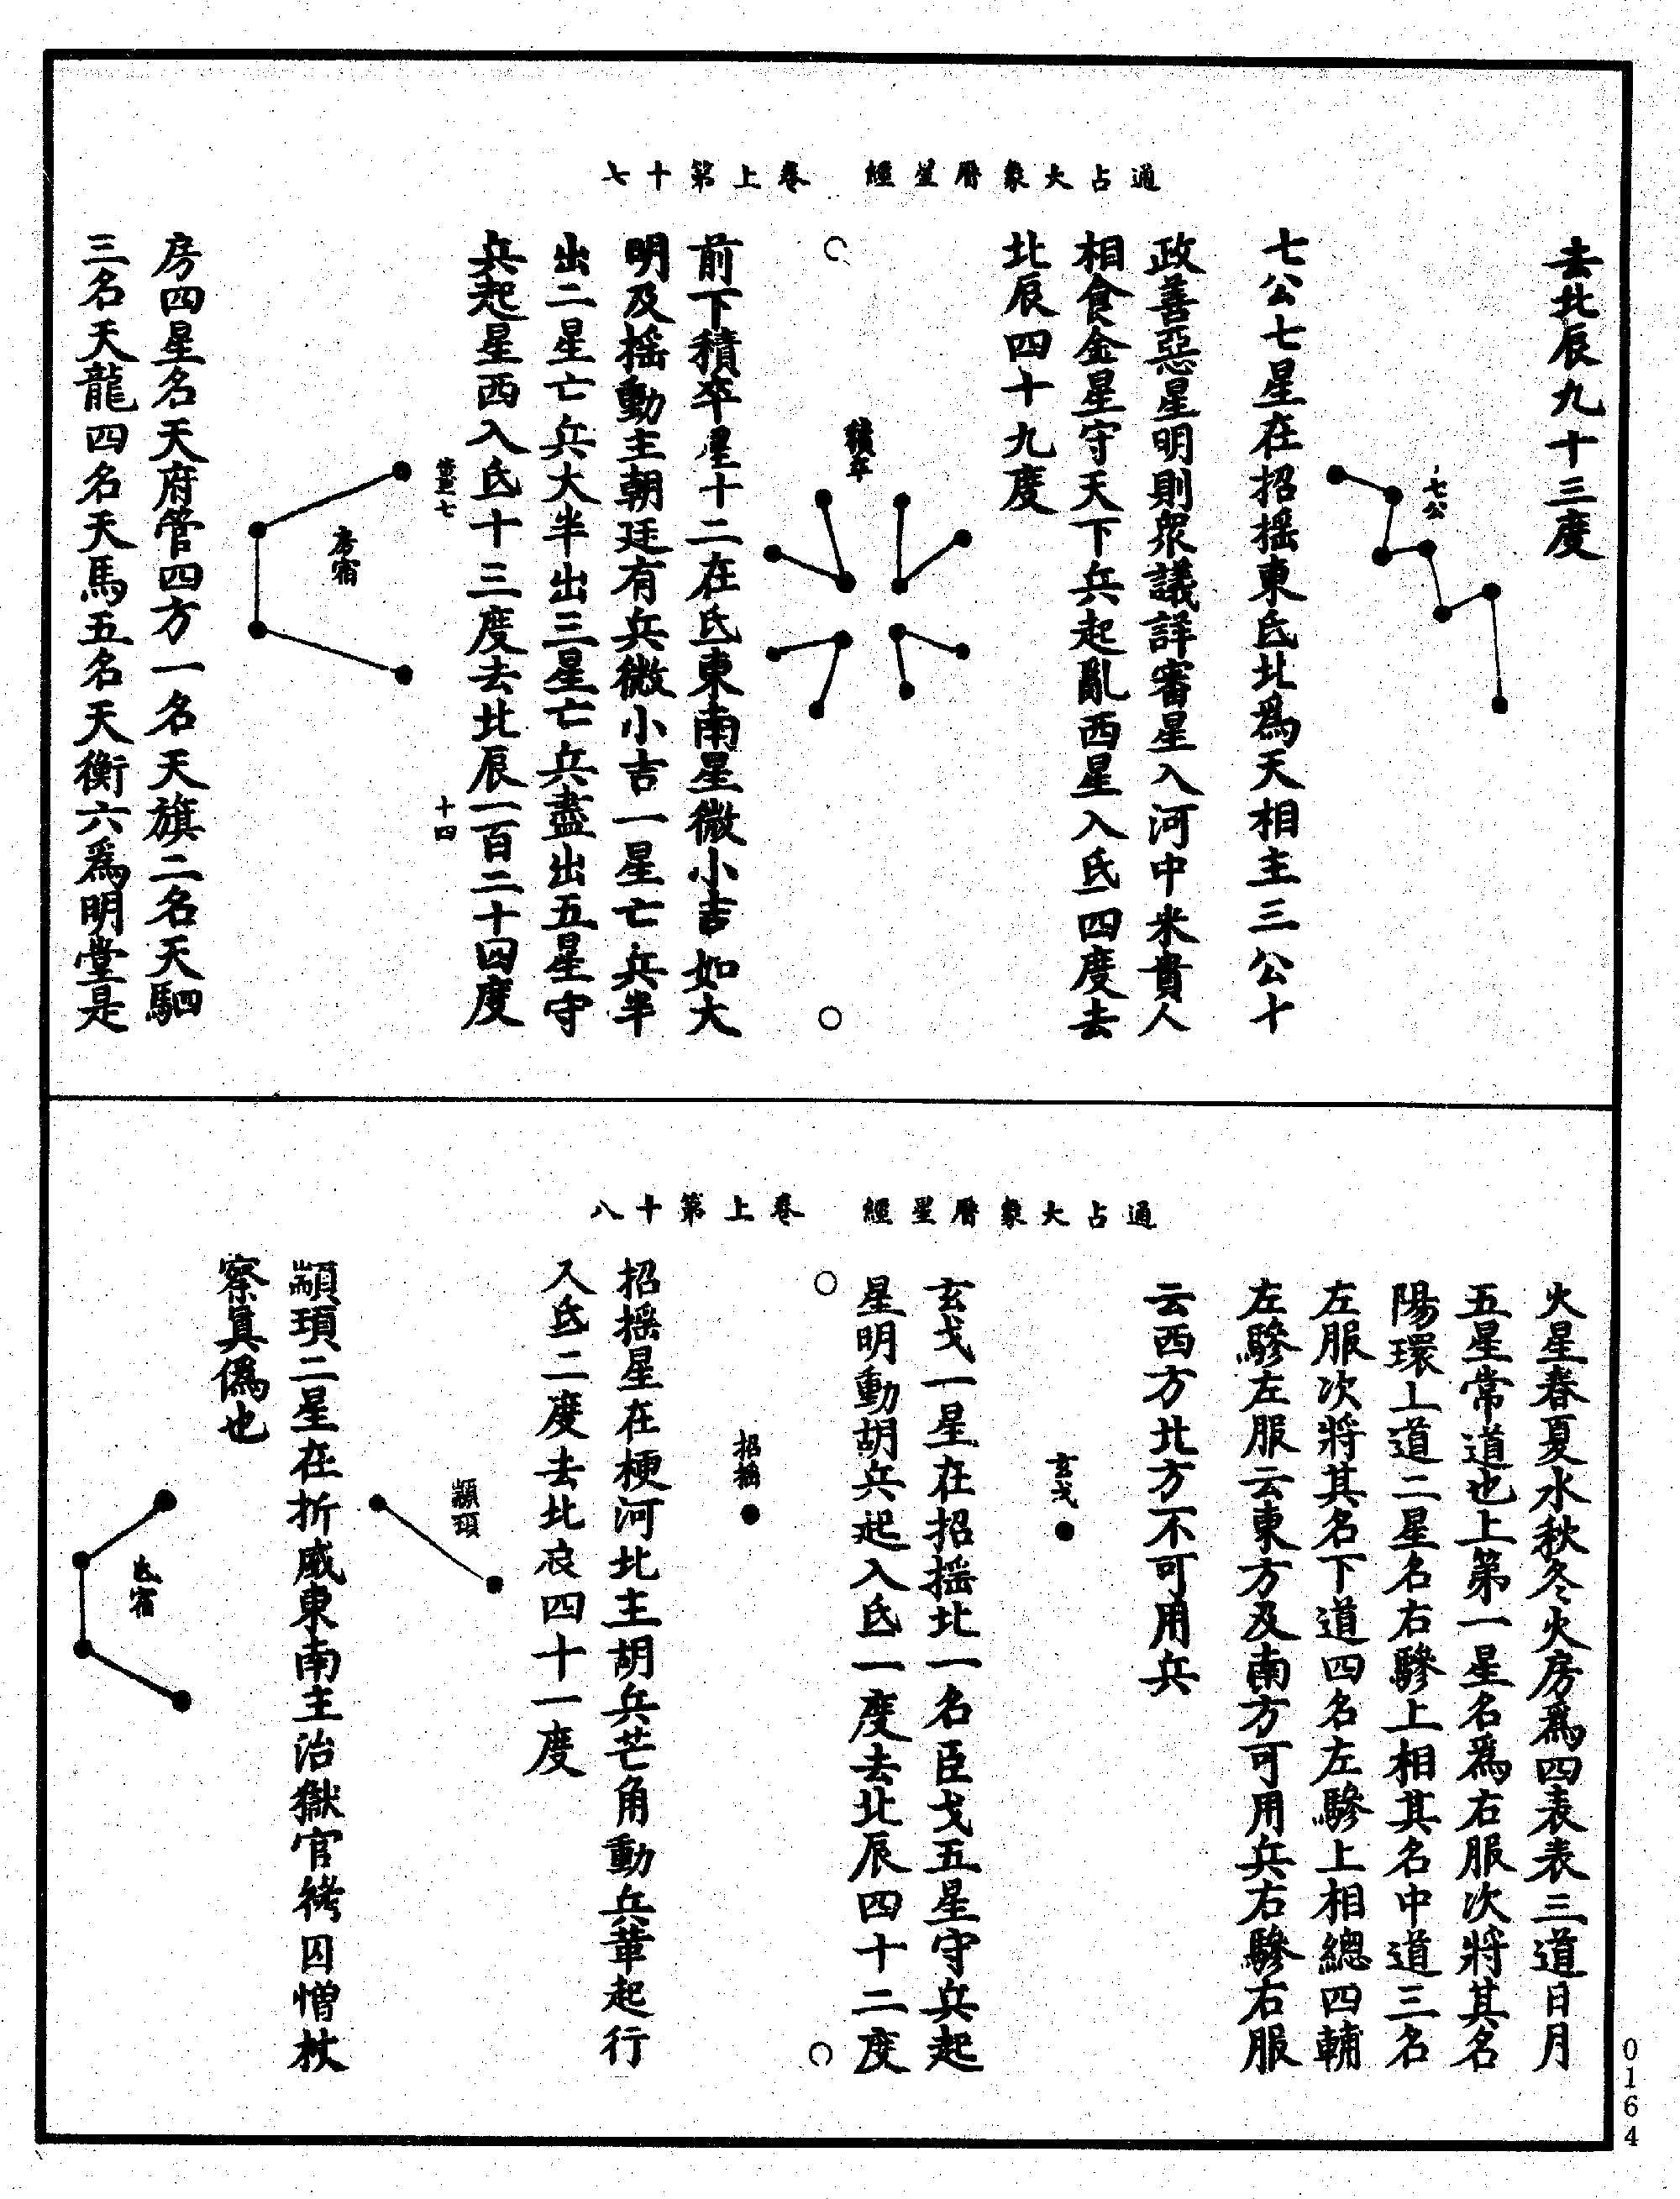 通占大象曆星經　卷上第十七
去北辰九十三度
七公
七公七星在招搖東氐北爲天相主三公十
政善惡星明則衆議詳審星入河中米貴人
相食金星守天下兵起亂西星入氐四度去
北辰四十九度
積卒
前下積卒星十二在氐東南星微小吉如大
明及搖動主朝廷有兵微小吉一星亡兵半
出二星亡兵大半出三星亡兵盡出五星守
兵起星西入氐十三度去北辰一百二十四度
七　十四
房宿
房四星名天府管四方一名天旗二名天駟
三名天龍四名天馬五名天衡六爲明堂是
通占大象曆星經　卷上第十八
火星春夏水秋冬火房爲四表表三道日月
五星常道也上第一星名爲右服次將其名
陽環上道二星名右驂上相其名中道三名
左服次將其名下道四名左驂上相總四輔
左驂左服云東方及南方可用兵右驂右服
云西方北方不可用兵
玄戈
玄戈一星在招搖北一名臣戈五星守兵起
星明動胡兵起入氐一度去北辰四十二度
招搖
招搖星在梗河北主胡兵芒角動兵革起行
入氐二度去北辰四十一度
顓頊
顓頊二星在折威東南主治獄官拷囚憎杖
察真僞也
氐宿
0164